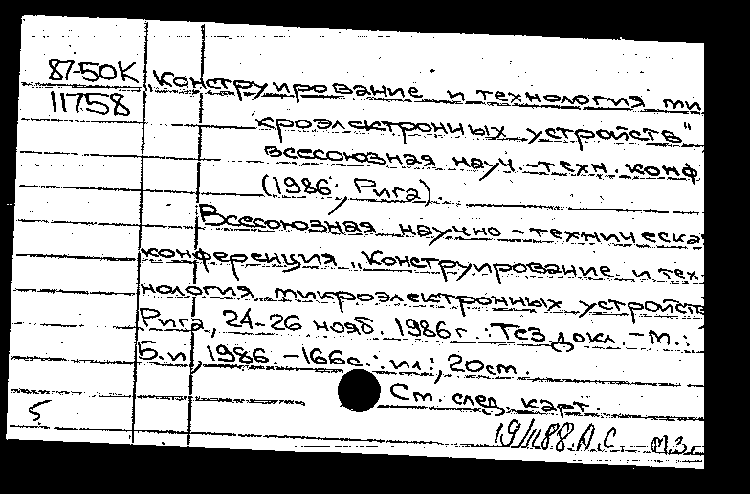 87-50К „Конструирование и технология ми
11758 кроэлектронных устройств"
всесоюзная науч.-техн. конф
(1986; Рига).
Всесоюзная научно-техническа
конференция „Конструирование и тех-
нология микроэлектронных устройств
Рига, 24-26 нояб. 1986г.: Тез докл. - М.:
Б.и, 1986. -166с.: ил.; 20см.
См. след карт.
5 19/II88. А.С. М.З.